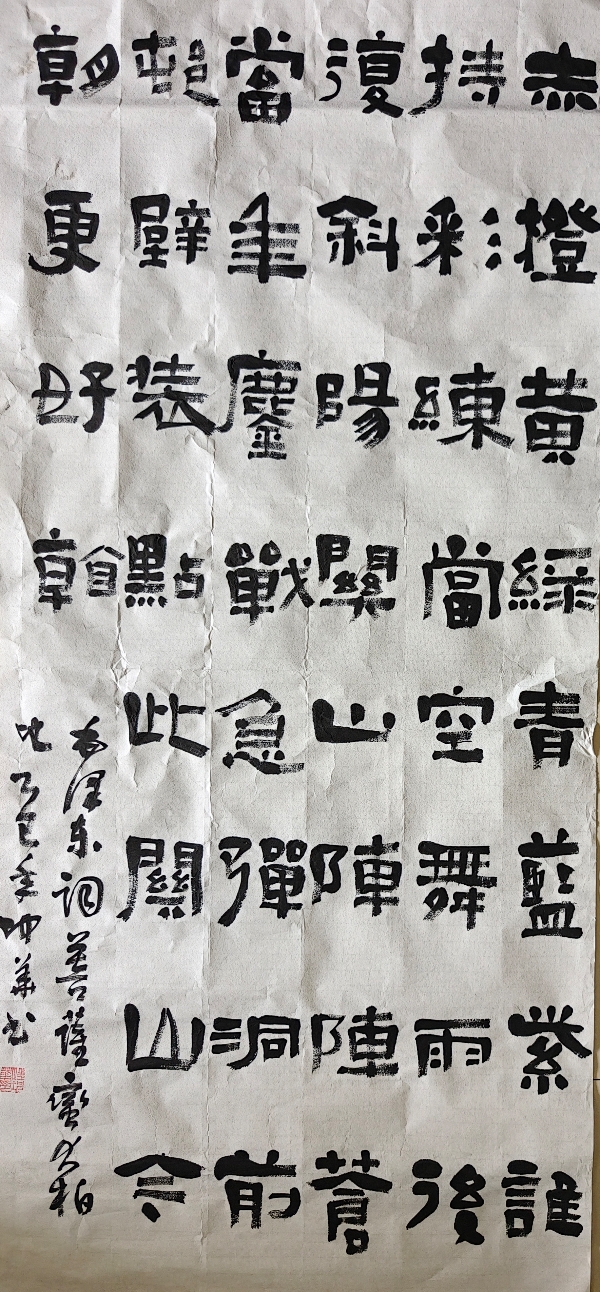 赤橙黄綠青藍紫誰
持彩練當空舞雨後
復斜陽關山陣陣蒼
當年鏖戰急彈洞前
邨壁裝點此關山今
朝更好看
毛泽东词菩薩蠻大柏
地乙巳年坤華书